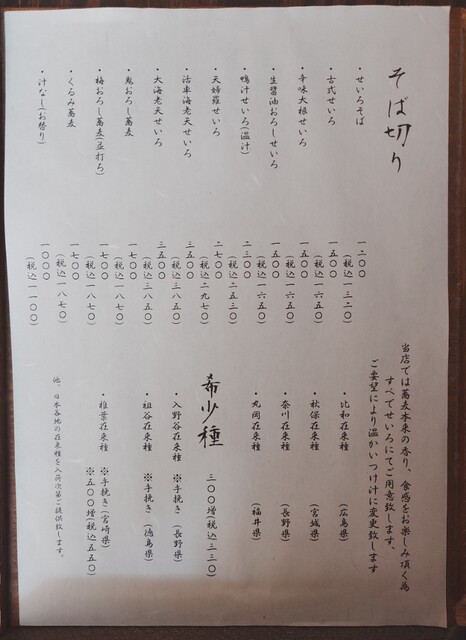 そば切り
・せいろそば 一二〇〇 (税込一三二〇)
・古式せいろ 一五〇〇 (税込一六五〇)
・辛味大根せいろ 一五〇〇 (税込一六五〇)
・生醤油おろしせいろ 一五〇〇 (税込一六五〇)
・鴨汁せいろ(温汁) 二三〇〇 (税込二五三〇)
・天婦羅せいろ 二七〇〇 (税込二九七〇)
・活車海老天せいろ 三五〇〇 (税込三八五〇)
・大海老天せいろ 三五〇〇 (税込三八五〇)
・鬼おろし蕎麦 一七〇〇 (税込一八七〇)
・梅おろし蕎麦(並打ち) 一七〇〇 (税込一八七〇)
・くるみ蕎麦 一七〇〇 (税込一八七〇)
・汁なし(お替り) 一〇〇〇 (税込一一〇〇)
当店では蕎麦本来の香り、食感をお楽しみ頂く為
すべてせいろにてご用意致します。
ご要望により温かいつけ汁に変更致します
・比和在来種 (広島県)
・秋保在来種 (宮城県)
・奈川在来種 (長野県)
・丸岡在来種 (福井県)
希少種 三〇〇増(税込三三〇)
・入野谷在来種 ※手挽き (長野県)
・祖谷在来種 ※手挽き (徳島県)
・椎葉在来種 ※手挽き(宮崎県)
※五〇〇増(税込五五〇)
他、日本各地の在来種を入荷次第ご提供致します。